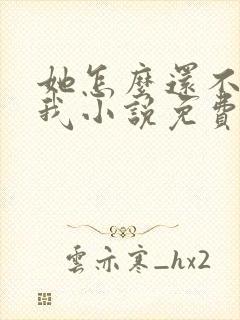 她怎麼還不
我小說免費
雲亦寒_hx2